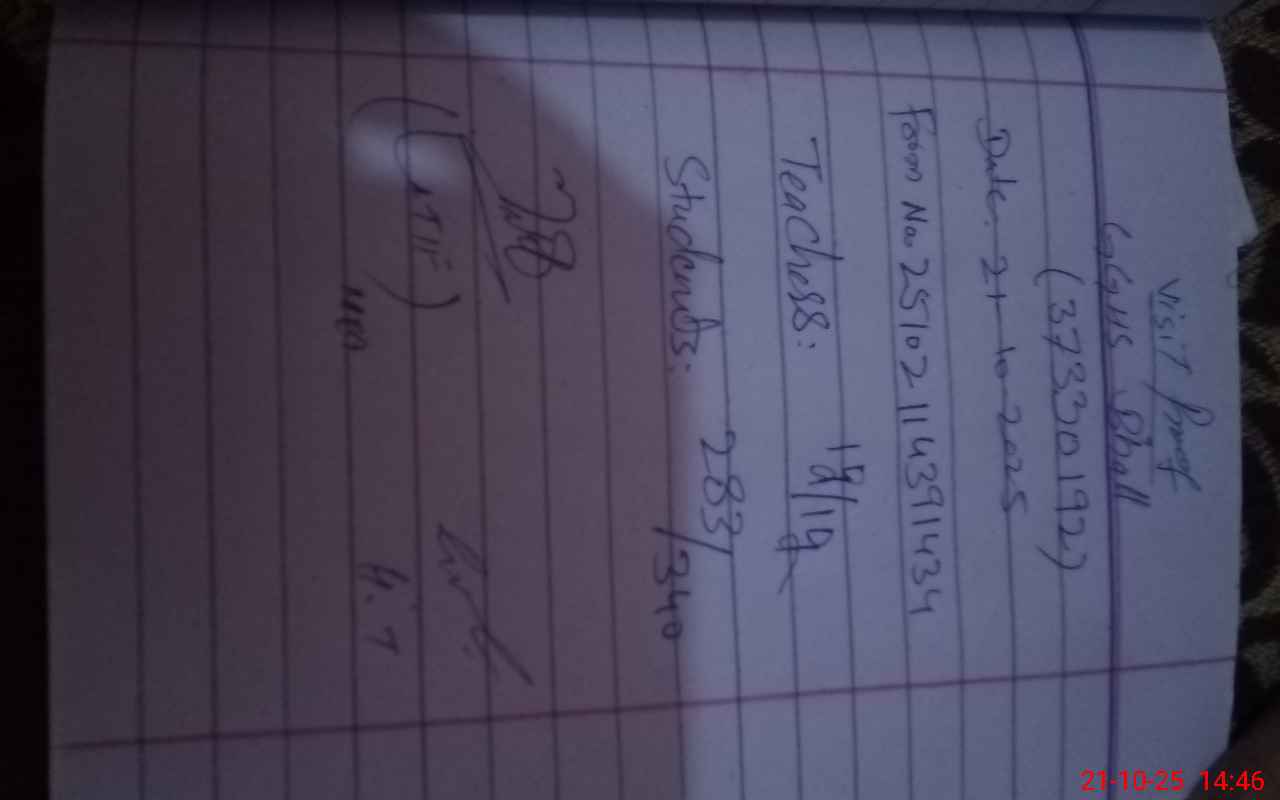 Visit Proof
GGHS Bhall
(37330192)
Date. 21-10-2025
Form No. 25102114391434
Teachers: 18/19
Students: 283/340
H.T
21-10-25 14:46